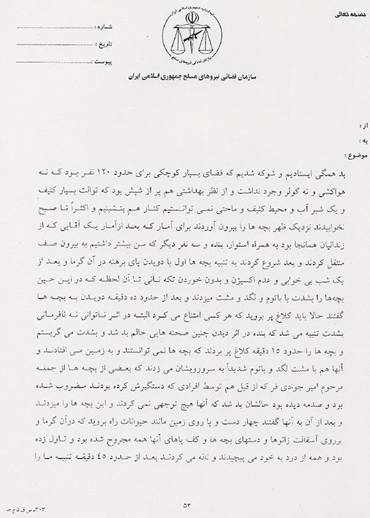 بسمه تعالی
شماره :
تاریخ :
پیوست :
سازمان قضائی نیروهای مسلح جمهوری اسلامی ایران
از :
به :
موضوع :
بد همگی ایستادیم و شوکه شدیم که فضای بسیار کوچکی برای حدود ۱۲۰ نفر بود که نه
هواکشی و نه کولر وجود نداشت و از نظر بهداشتی هم پر از شپش بود که توالت بسیار کثیف
و یک شیر آب و محیط کثیف و ماحتی نمی توانستیم کنار هم بنشینیم و اکثراً تا صبح
نخوابیدند نزدیک ظهر بچه ها را بیرون آوردند برای آمار که بعد ازآمار یک آقایی که از
زندانیان همانجا بود به همراه استوار، بنده و سه نفر دیگر که سن بیشتر داشتیم به بیرون صف
منتقل کردند و بعد شروع کردند به تنبیه بچه ها اول با دویدن پای برهنه در آن گرما و بعد از
یک شب بی خوابی و عدم اکسیژن و بدون خوردن تکه نانی تا آن لحظه که در این حین
بچه‌ها را بشدت با باتوم و لگد و مشت میزدند و بعد از حدود ده دقیقه دویدن به بچه ها
گفتند حالا باید کلاغ پر بروید که هر کسی امتناع می کرد البته در اثر ناتوانی نه نافرمانی
بشدت تنبیه می شد که بنده در اثر دیدن چنین صحنه هایی حالم بد شد و بشدت می گریستم
و بچه ها را حدود ۱۵ دقیقه کلاغ پر بردند که بچه ها نمی توانستند و به زمین می افتادند و
آنها هم با مشت لگد و باتوم شدیداً به سرورویشان می زدند که بعضی از بچه ها از جمله
مرحوم امیر جوادی فر که از قبل هم توسط افرادی که دستگیرش کرده بودند مضروب شده
بود و صدمه دیده بود حالشان بد شد که آنها هیچ توجهی نمی کردند و این بچه ها را میزدند
و بعد از آن به آنها گفتند چهار دست و پا روی زمین مانند حیوانات راه بروید که درآن گرما و
برروی آسفالت زانوها و دستهای بچه ها و کف پاهای آنها همه مجروح شده بود و تاول زده
بود و همه از درد به خود می پیچیدند و ناله می کردند بعد از حدود ۴۵ دقیقه تنبیه ما را
۵۳